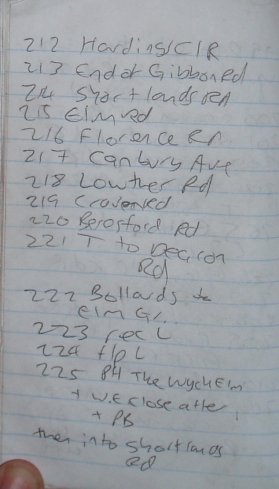 212 Hardings/CIR
213 End of Gibbon Rd
214 Shortlands Rd
215 Elm Rd
216 Florence Rd
217 Canbury Ave
218 Lowther Rd
219 Craven Rd
220 Beresford Rd
221 T to Deacon
Rd
222 Bollards to
Elm G/..
223 rec L
224 flp L
225 PH The Wych Elm
+ W.E close after
+ PB
then into Shortlands
Rd